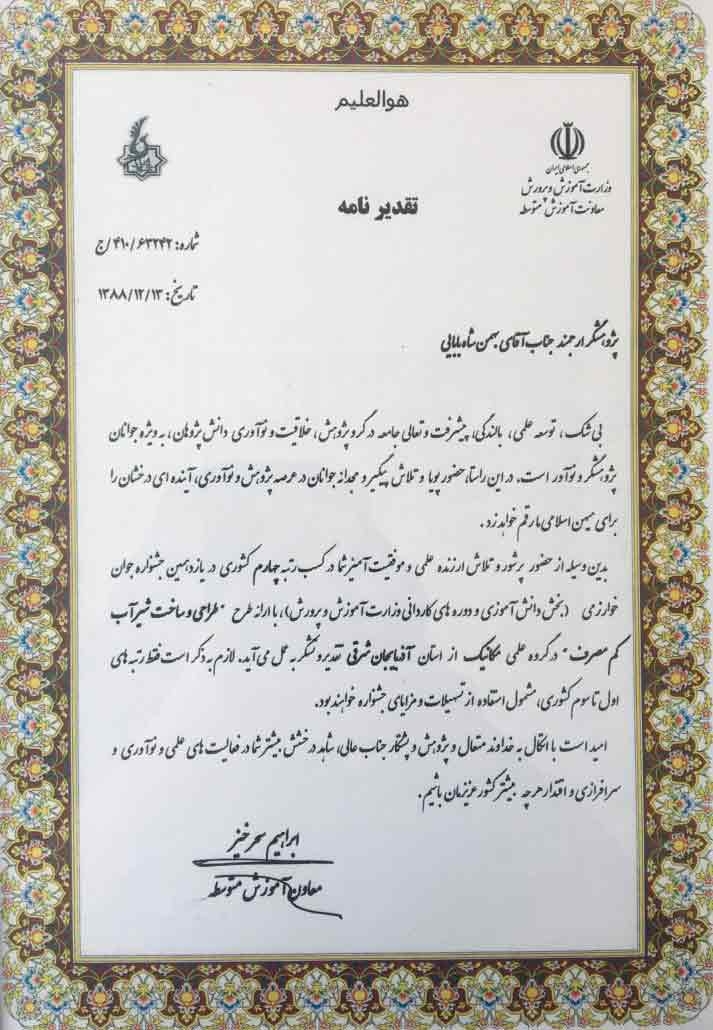 هوالعلیم
جمهوری اسلامی ایران
وزارت آموزش و پرورش
معاونت آموزش متوسطه
تقدیر نامه
شماره: ۴۱۰/۶۳۲۴۲/ج
تاریخ: ۱۳۸۸/۱۲/۱۳
پژوهشگر ارجمند جناب آقای بهمن شاه بابایی
بی شک، توسعه علمی، بالندگی، پیشرفت و تعالی جامعه در گرو پژوهش، خلاقیت و نوآوری دانش پژوهان، به ویژه جوانان
پژوهشگر و نوآور است. در این راستا، حضور پویا و تلاش پیگیر و مجدانه جوانان در عرصه پژوهش و نوآوری، آینده ای درخشان را
برای میهن اسلامی ما رقم خواهد زد.
بدین وسیله از حضور پرشور و تلاش ارزنده علمی و موفقیت آمیز شما در کسب رتبه چهارم کشوری در یازدهمین جشنواره جوان
خوارزمی (بخش دانش آموزی و دوره های کاردانی وزارت آموزش و پرورش)، با ارائه طرح "طراحی و ساخت شیر آب
کم مصرف" در گروه علمی مکانیک از استان آذربایجان شرقی تقدیر و تشکر به عمل می آید. لازم به ذکر است فقط رتبه های
اول تا سوم کشوری، مشمول استفاده از تسهیلات و مزایای جشنواره خواهند بود.
امید است با اتکال به خداوند متعال و پژوهش و پشتکار جناب عالی، شاهد درخشش بیشتر شما در فعالیت های علمی و نوآوری و
سرافرازی و اقتدار هرچه بیشتر کشور عزیزمان باشیم.
ابراهیم سحرخیز
معاون آموزش متوسطه